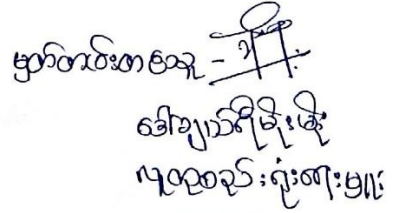 မှတ်တမ်းတင်သူ -
ဒေါ်ချယ်ရီမိုးမိုး
လူထုစည်းရုံးရေးမှူး